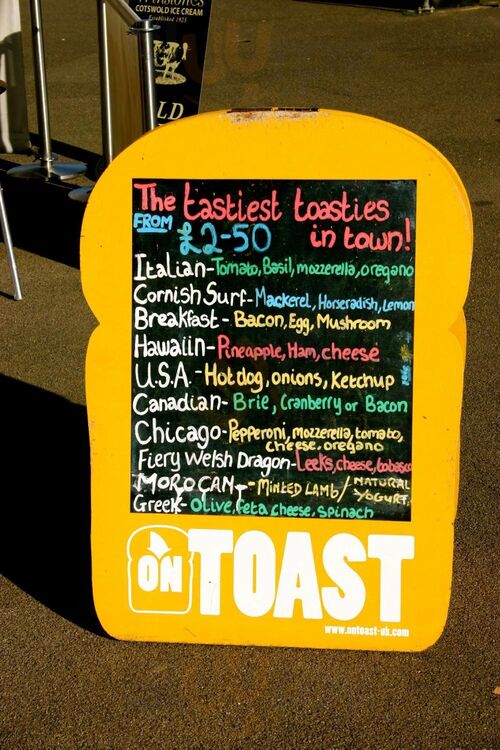 COTSWOLD ICE CREAM
Established 1925
LD
The tastiest toasties
FROM £2-50 in town!
Italian-Tomato, Basil, mozzerella, oregano
Cornish Surf-Mackerel, Horseradish, Lemon
Breakfast-Bacon, Egg, Mushroom
Hawaiin-Pineapple, Ham, cheese
U.S.A.-Hotdog, onions, Ketchup
Canadian-Brie, Cranberry or Bacon
Chicago-Pepperoni, mozzerella, tomato,
cheese, oregano
Fiery Welsh Dragon-Leeks, cheese, tobasco
MOROCAN-MINTED LAMB/NATURAL
YOGURT
Greek-Olive, feta cheese, spinach
ON TOAST
www.ontoast-uk.com